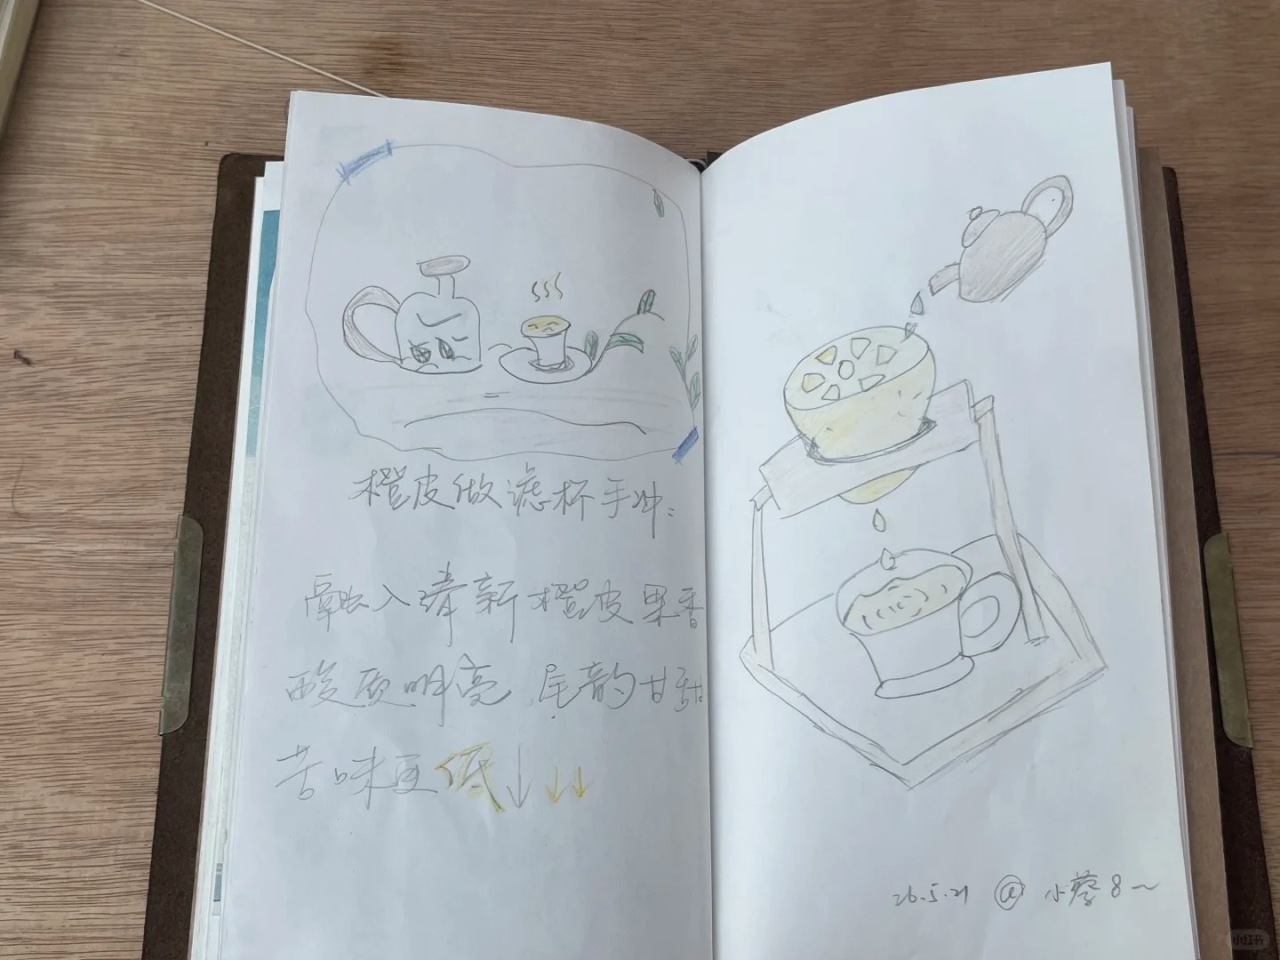 橙皮做滤杯手冲:
融入清新橙皮果香
酸质明亮 尾韵甘甜
苦味更低↓↓↓
26.5.21 @小蔡8～
小红书